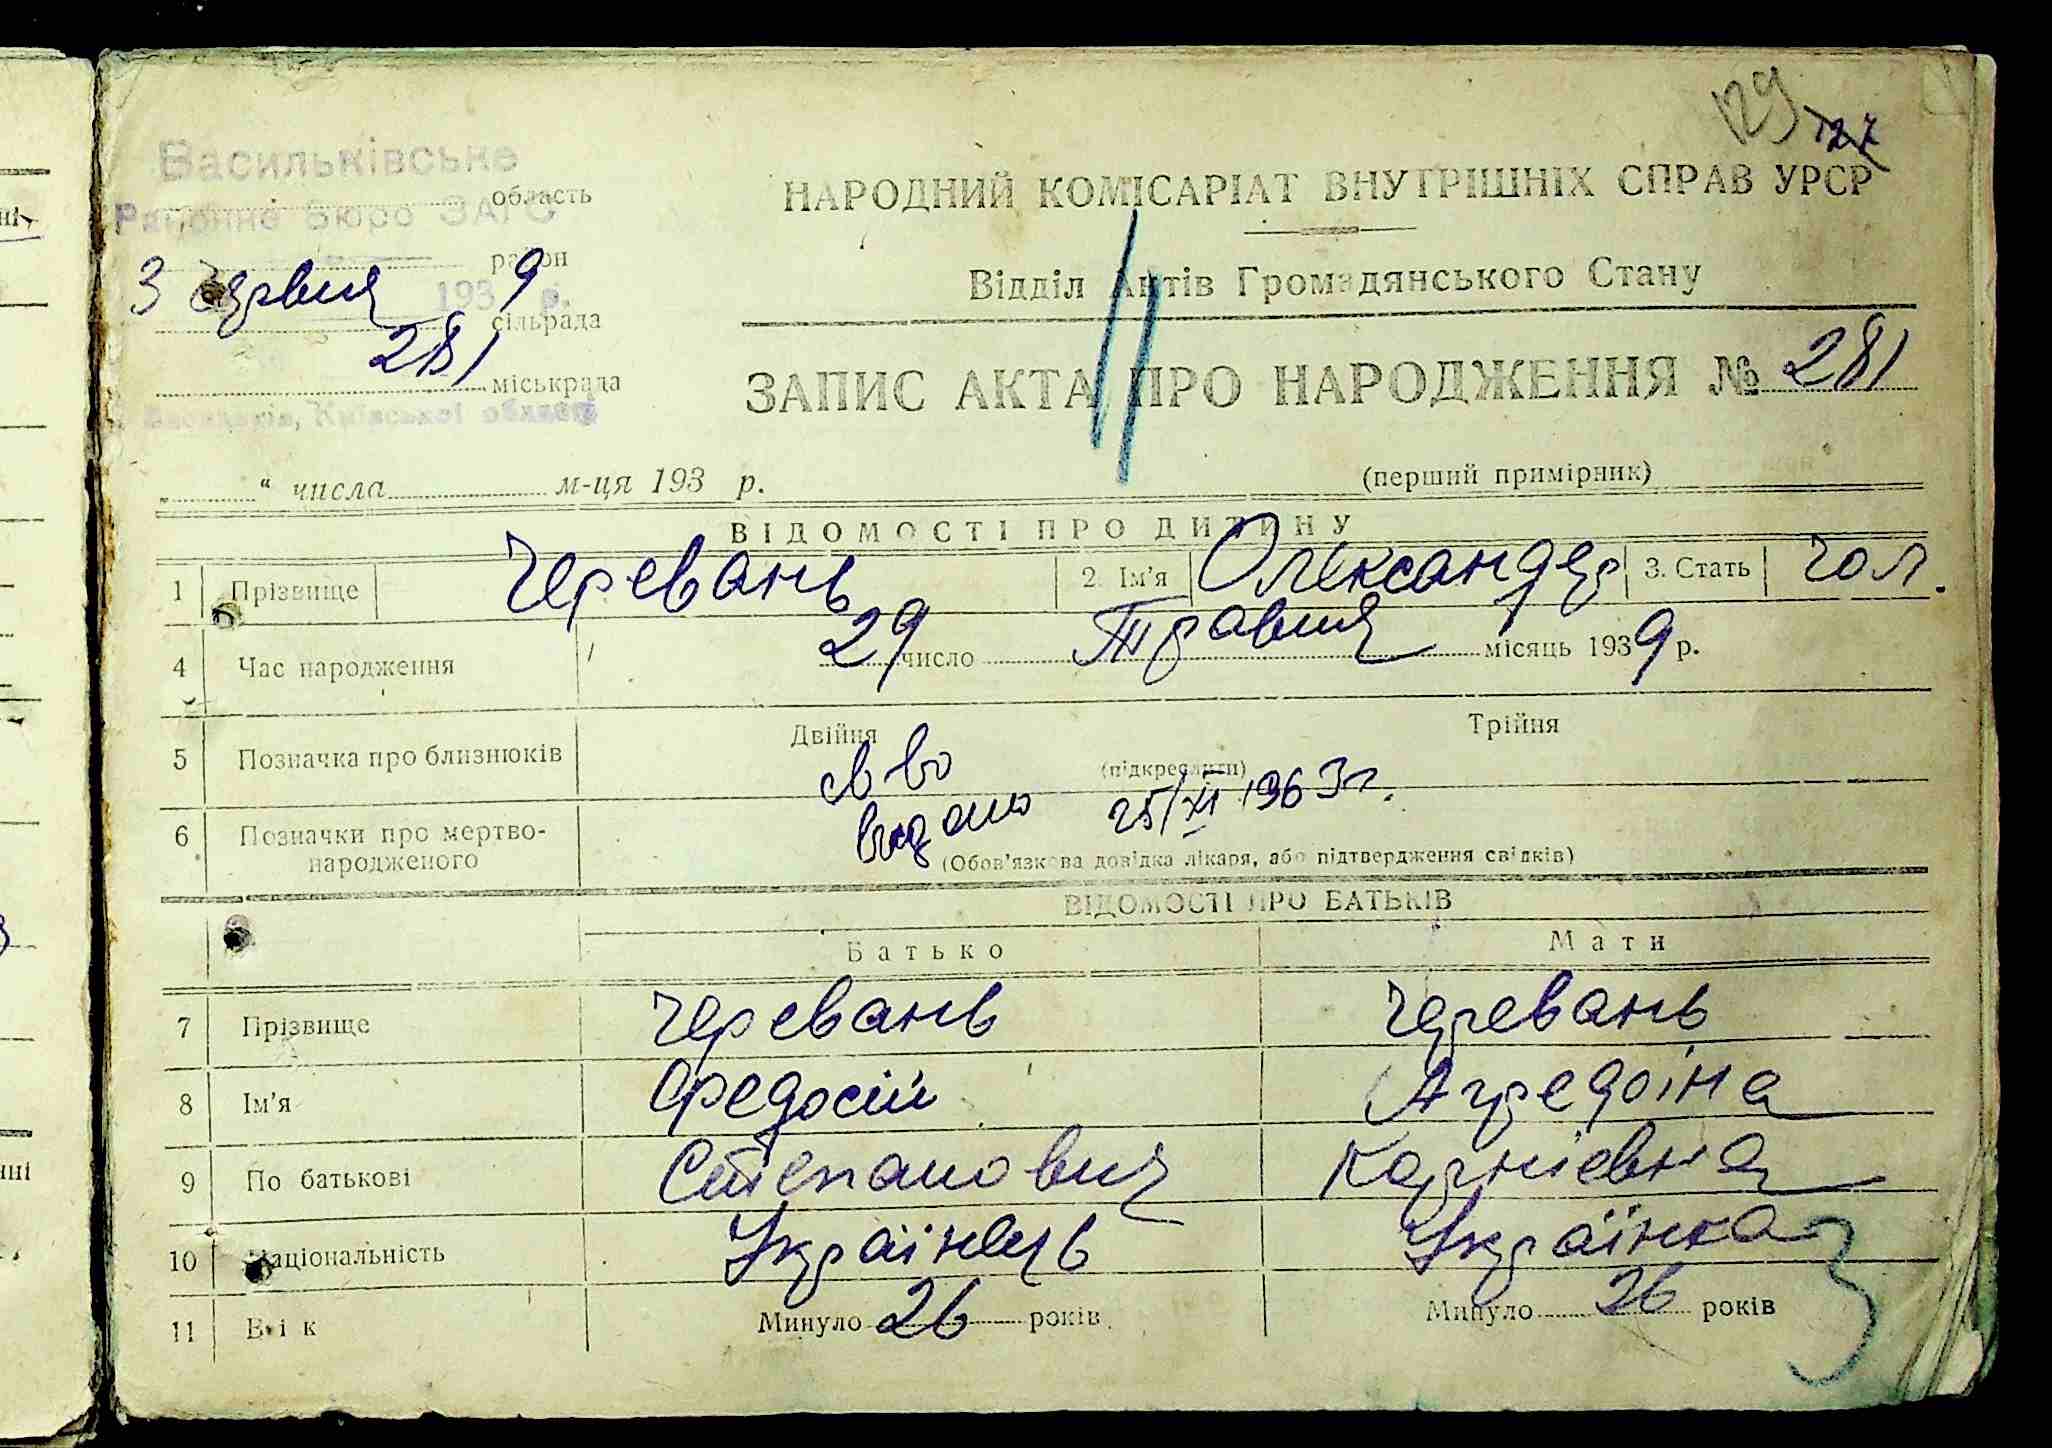 129 127
Васильківське
область
Районне Бюро ЗАГС
район
3 червня 1939 р.
сільрада
281
міськрада
Васильків, Київської області
НАРОДНИЙ КОМІСАРІАТ ВНУТРІШНІХ СПРАВ УРСР
Відділ Актів Громадянського Стану
ЗАПИС АКТА ПРО НАРОДЖЕННЯ № 281
„ “ числа м-ця 193 р.
(перший примірник)
ВІДОМОСТІ ПРО ДИТИНУ
1 Прізвище Черевань 2. Ім'я Олександр 3. Стать чол.
4 Час народження 29 число Травня місяць 1939 р.
5 Позначка про близнюків Двійня Трійня
(підкреслити)
св во
видано 25/XI 1963 г.
6 Позначки про мертво-
народженого
(Обов'язкова довідка лікаря, або підтвердження свідків)
ВІДОМОСТІ ПРО БАТЬКІВ
Батько Мати
7 Прізвище Черевань Черевань
8 Ім'я Федосій
9 По батькові Степанович Корніевна
10 Національність Українець Українка
11 Вік Минуло 26 років Минуло 26 років
3